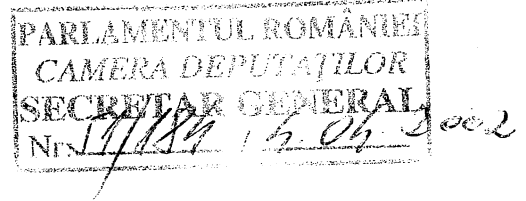 PARLAMENTUL ROMÂNIEI
CAMERA DEPUTAŢILOR
SECRETAR GENERAL
Nr. 11/184 / 4.04.2002